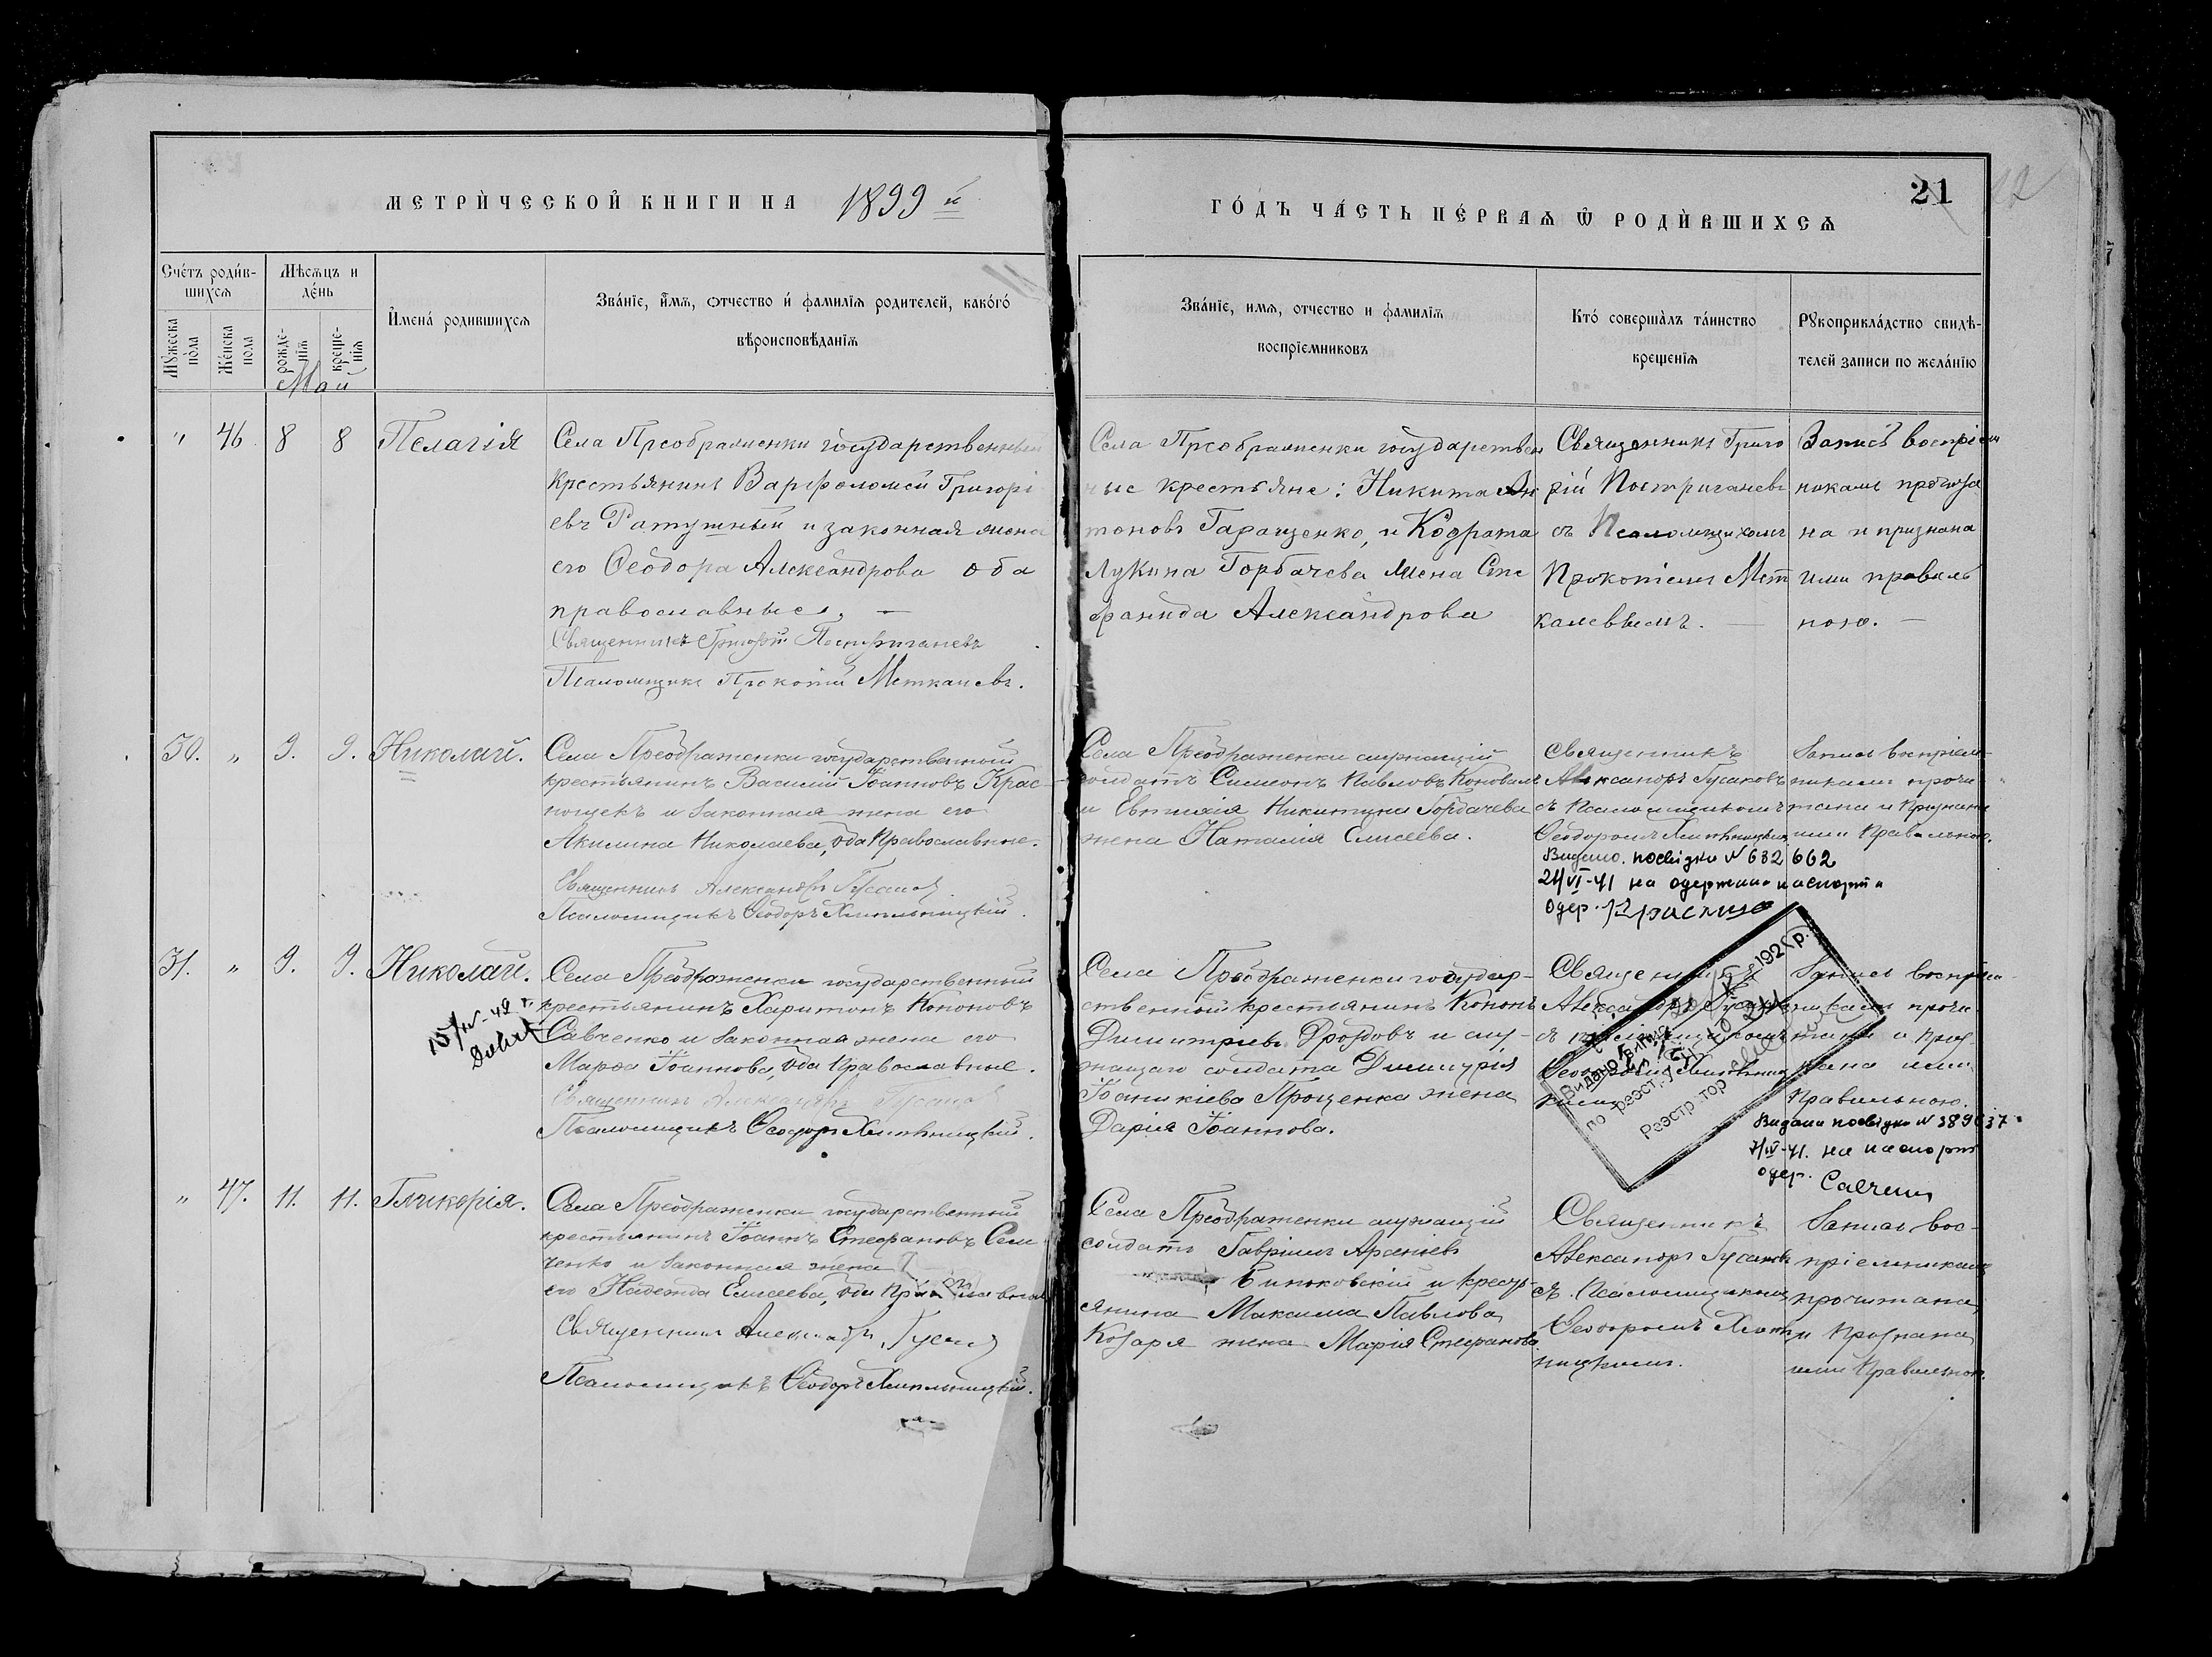 МЕТРИ́ЧЕСКОЙ КНИГИ НА 1899 й
ГО́ДЪ ЧА́СТЬ ПЕ́РВАѦ Ѿ РОДИ́ВШИХСѦ
21
Сче́тъ роди́в-
шихсѧ
Мѣсѧцъ и
де́нь
Мꙋжеска
по́ла
Же́нска
пола
рожде-
нїѧ
креще-
нїѧ
И҆мена́ родившихсѧ
Зва́нїе, и҆́мѧ, ѻтчество и҆ фамилїѧ родителей, како́гѡ
вѣроисповѣданїѧ
Зва́нїе, имѧ, отчество и фамилїѧ
воспрїемниковъ
Кто̀ совершалъ та́инство
крещенїѧ
Рꙋкоприкла́дство свидѣ-
телей записи по жела́нїю
Май
" 46 8 8 Пелагія
Села Преображенки государственный
крестьянинъ Варфоломей Григорі
евъ Ратушный и законная жена
его Ѳеодора Александрова оба
православные. —
Священникъ Григорій Постриганевъ
Псаломщикъ Прокопій Меткалевъ.
Села Преображенки государствен
ные крестьяне: Никита Ан
тоновъ Гаращенко, и Кодрата
Лукина Горбачева жена Сте
фанида Александрова
Священникъ Григо
рій Постриганевъ
съ Псаломщикомъ
Прокопіемъ Мет
калевымъ. —
Запись воспріем
никамъ прочита
на и признана
ими правиль
ною. —
30. " 9. 9. Николай.
Села Преображенки государственный
крестьянинъ Василій Іоанновъ Крас-
нощекъ и законная жена его
Акилина Николаева, оба Православные.
Священникъ Александръ Гусаковъ
Псаломщикъ Ѳеодоръ Хмельницкій.
Села Преображенки служащій
солдатъ Симеонъ Павловъ Коновалъ
и Евтихія Никитина Горбачева
жена Наталія Елисеева.
Священникъ
Александръ Гусаковъ
съ Псаломщикомъ
Ѳеодоромъ Хмельницким
Запись воспріем-
никами прочи-
тана и признана
ими Правильною.
Видано. посвідку № 682 662
24/VI-41 на одержання паспорта
Одер.
31. " 9. 9. Николай.
15/IV-42 г.
Села Преображенки государственный
крестьянинъ Харитонъ Кононовъ
Савченко и законная жена его
Марѳа Іоаннова, оба Православные.
Священникъ Александръ Гусаковъ
Псаломщикъ Ѳеодоръ Хмельницкій.
Села Преображенки государ-
ственный крестьянинъ Кононъ
Димитріевъ Дроздовъ и слу-
жащаго солдата Димитрія
Іоаникіева Проценка жена
Дарія Іоаннова.
Священникъ
Александръ Гусаковъ
съ псаломщикомъ
Ѳеодоромъ Хмельниц
кимъ
Запись воспріем-
никами прочи-
тана и приз-
нана ими
Правильною.
192 р.
Видано
по реэст.
Реэстр тор
Видана посвідка № 389637
7/IV-41. на паспорт
одер. Савченко
" 47. 11. 11. Гликерія.
Села Преображенки государственный
крестьянинъ Іоаннъ Стефановъ Сем
ченко и законная жена
его Надежда Елисеева, оба православные
Священникъ Александръ Гусаковъ
Псаломщикъ Ѳеодоръ Хмельницкій.
Села Преображенки служащій
солдатъ Гавріилъ Арсеніевъ
Биньковскій и кресть-
янина Максима Павлова
Козаря жена Марія Стефанова
Священникъ
Александръ Гусаковъ
съ Псаломщикомъ
Ѳеодоромъ Хмель
ницкимъ.
Запись вос-
пріемниками
прочитана
и признана
ими Правильною.